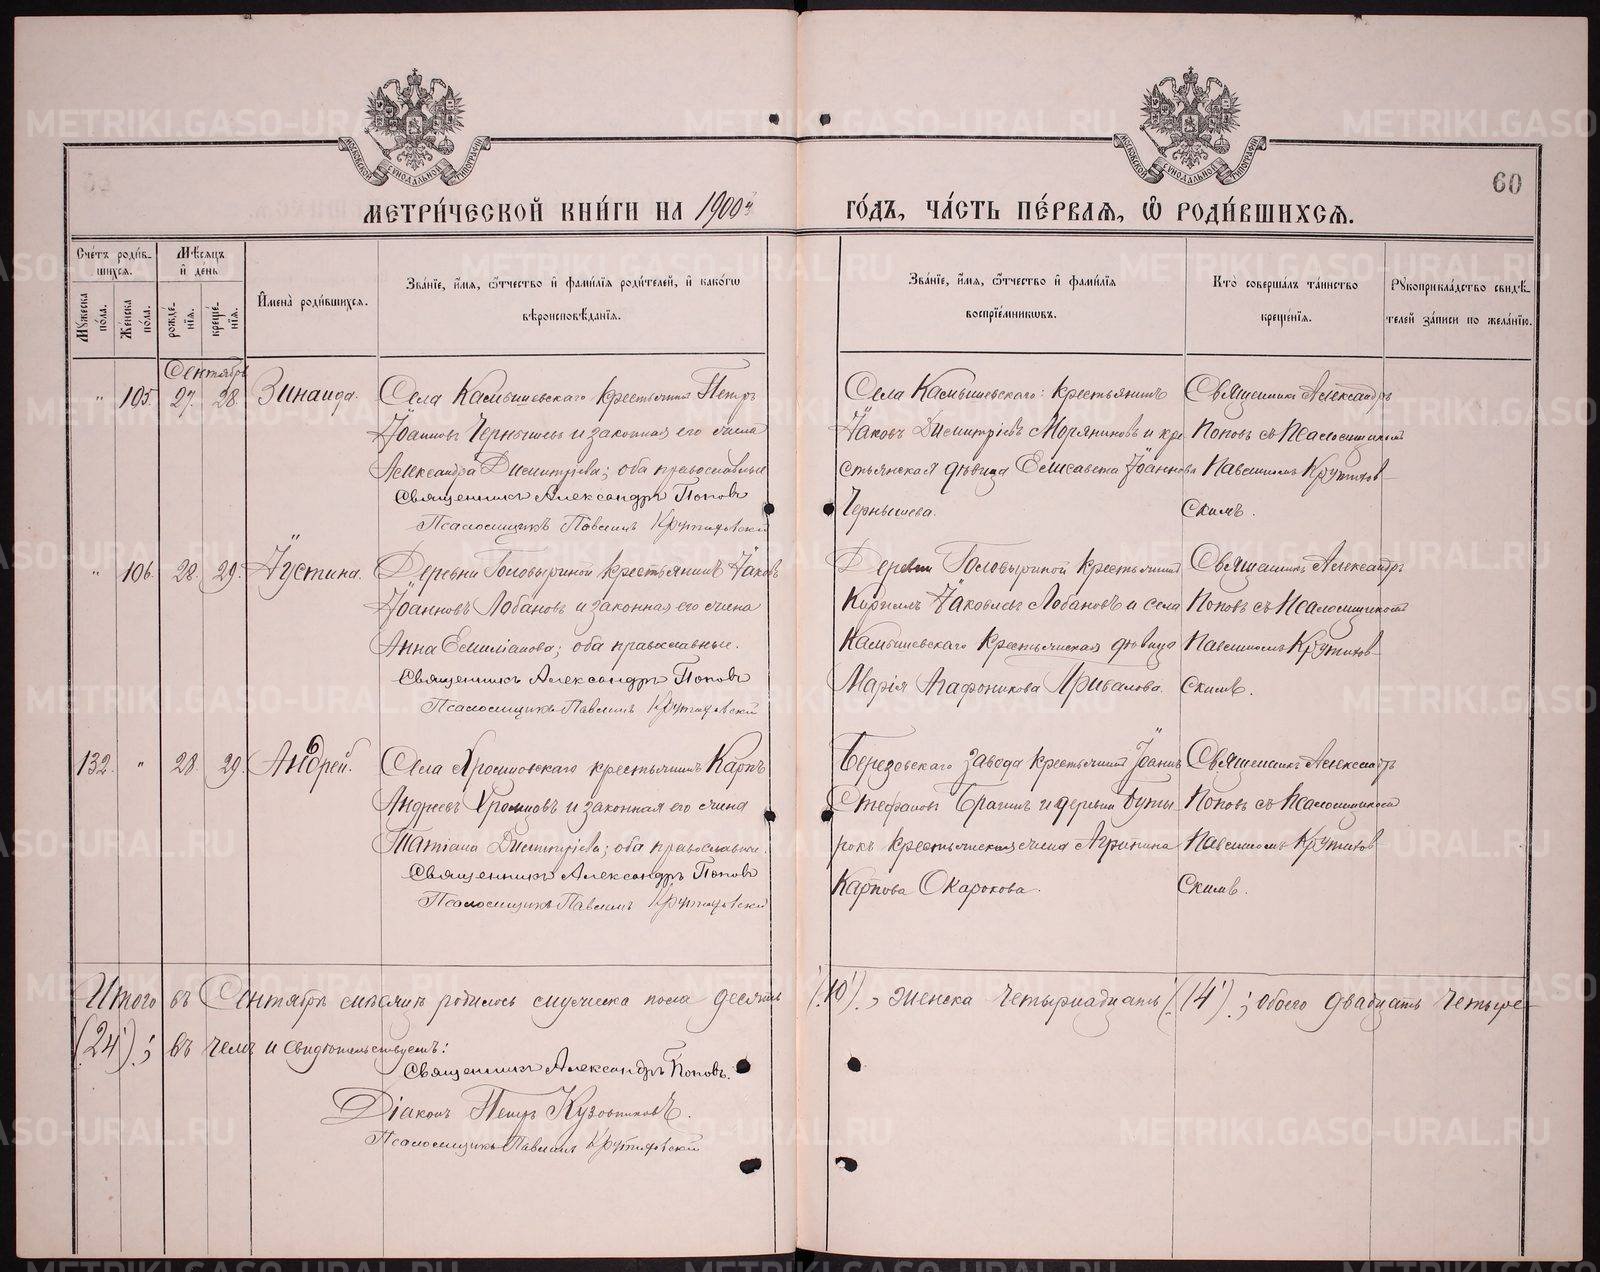 МЕТРИ́ЧЕСКОЙ КНИ́ГИ НА 1900й ГО́ДЪ, ЧА́СТЬ ПЕ́РВАЯ, Ѿ РОДИ́ВШИХСЯ.
60
Сче́тъ роди́в-
шихся.
Мѣ́сяцъ
и̂ де́нь
И̂мена̀ роди́вшихся.
Зва́нїе, и̂́мя, ѻ҆́тчество и̂ фами́лїя роди́телей, и̂ како́гѡ
вѣроисповѣ́данїя.
Зва́нїе, и̂́мя, ѻ҆́тчество и̂ фами́лїя
воспрїе́мниковъ.
Кто̀ соверша́лъ та́инство
креще́нїя.
Рꙋкоприкла́дство свидѣ́-
телей за́писи по жела́нїю.
Мꙋ́жеска по́ла.
Же́нска по́ла.
рожде́-
нїя.
креще́-
нїя.
Сентябрь
" 105. 27. 28. Зинаида.
Села Камышевскаго крестьянинъ Петръ
Іоанновъ Чернышевъ и законная его жена
Александра Димитріева; оба православные
Священникъ Александръ Поповъ
Псаломщикъ Павлинъ Крутиховскій
Села Камышевскаго: крестьянинъ
Іаковъ Димитріевъ Моряниновъ и кре
стьянская дѣвица Елисавета Іоаннова
Чернышева.
Священникъ Александръ
Поповъ съ Псаломщикомъ
Павлиномъ Крутихов-
скимъ.
" 106. 28. 29. Іустина.
Деревни Головыриной крестьянинъ Іаковъ
Іоанновъ Лобановъ и законная его жена
Анна Емиліанова; оба православные.
Священникъ Александръ Поповъ
Псаломщикъ Павлинъ Крутиховскій
Деревни Головыриной крестьянинъ
Кириллъ Іаковлевъ Лобановъ и села
Камышевскаго крестьянская дѣвица
Марія Агафоникова Привалова.
Священникъ Александръ
Поповъ съ Псаломщикомъ
Павлиномъ Крутихов-
скимъ.
132. " 28. 29. Андрей.
Села Хромцовскаго крестьянинъ Карпъ
Андреевъ Хромцовъ и законная его жена
Татіана Димитріева; оба православные.
Священникъ Александръ Поповъ
Псаломщикъ Павлинъ Крутиховскій
Березовскаго завода крестьянинъ Іоаннъ
Стефановъ Брагинъ и деревни Буты
рокъ крестьянская жена Агрипина
Карпова Окарокова.
Священникъ Александръ
Поповъ съ Псаломщикомъ
Павлиномъ Крутихов-
скимъ.
Итого въ Сентябрѣ мѣсяцѣ родилось мужеска пола десять (10), женска четырнадцать (14); обоего двадцать четыре
(24); въ чемъ и свидѣтельствуемъ:
Священникъ Александръ Поповъ.
Діаконъ Петръ Кузовниковъ.
Псаломщикъ Павлинъ Крутиховскій
METRIKI.GASO-URAL.RU